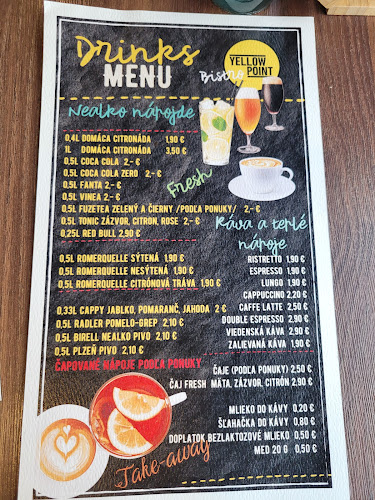 Drinks
MENU
Bistro
YELLOW
POINT
Nealko nápojde
0,4L DOMÁCA CITRONÁDA 1,90 €
1L DOMÁCA CITRONÁDA 3,50 €
0,5L COCA COLA 2,- €
0,5L COCA COLA ZERO 2,- €
0,5L FANTA 2,- €
0,5L VINEA 2,- €
0,5L FUZETEA ZELENÝ A ČIERNY /PODĽA PONUKY/ 2,- €
0,5L TONIC ZÁZVOR, CITRON, ROSE 2,- €
0,25L RED BULL 2,90 €
Fresh
0,5L ROMERQUELLE SÝTENÁ 1,90 €
0,5L ROMERQUELLE NESÝTENÁ 1,90 €
0,5L ROMERQUELLE CITRÓNOVÁ TRÁVA 1,90 €
0,33L CAPPY JABLKO, POMARANČ, JAHODA 2 €
0,5L RADLER POMELO-GREP 2,10 €
0,5L BIRELL NEALKO PIVO 2,10 €
0,5L PLZEŇ PIVO 2,10 €
ČAPOVANÉ NÁPOJE PODĽA PONUKY
Káva a teplé
nápoje
RISTRETTO 1,90 €
ESPRESSO 1,90 €
LUNGO 1,90 €
CAPPUCCINO 2,20 €
CAFFE LATTE 2,50 €
DOUBLE ESPRESSO 2,90 €
VIEDENSKÁ KÁVA 2,90 €
ZALIEVANÁ KÁVA 1,90 €
ČAJE (PODĽA PONUKY) 2,50 €
ČAJ FRESH MÄTA, ZÁZVOR, CITRÓN 2,90 €
MLIEKO DO KÁVY 0,20 €
ŠĽAHAČKA DO KÁVY 0,80 €
DOPLATOK BEZLAKTOZOVÉ MLIEKO 0,50 €
MED 20 G 0,50 €
Take-away